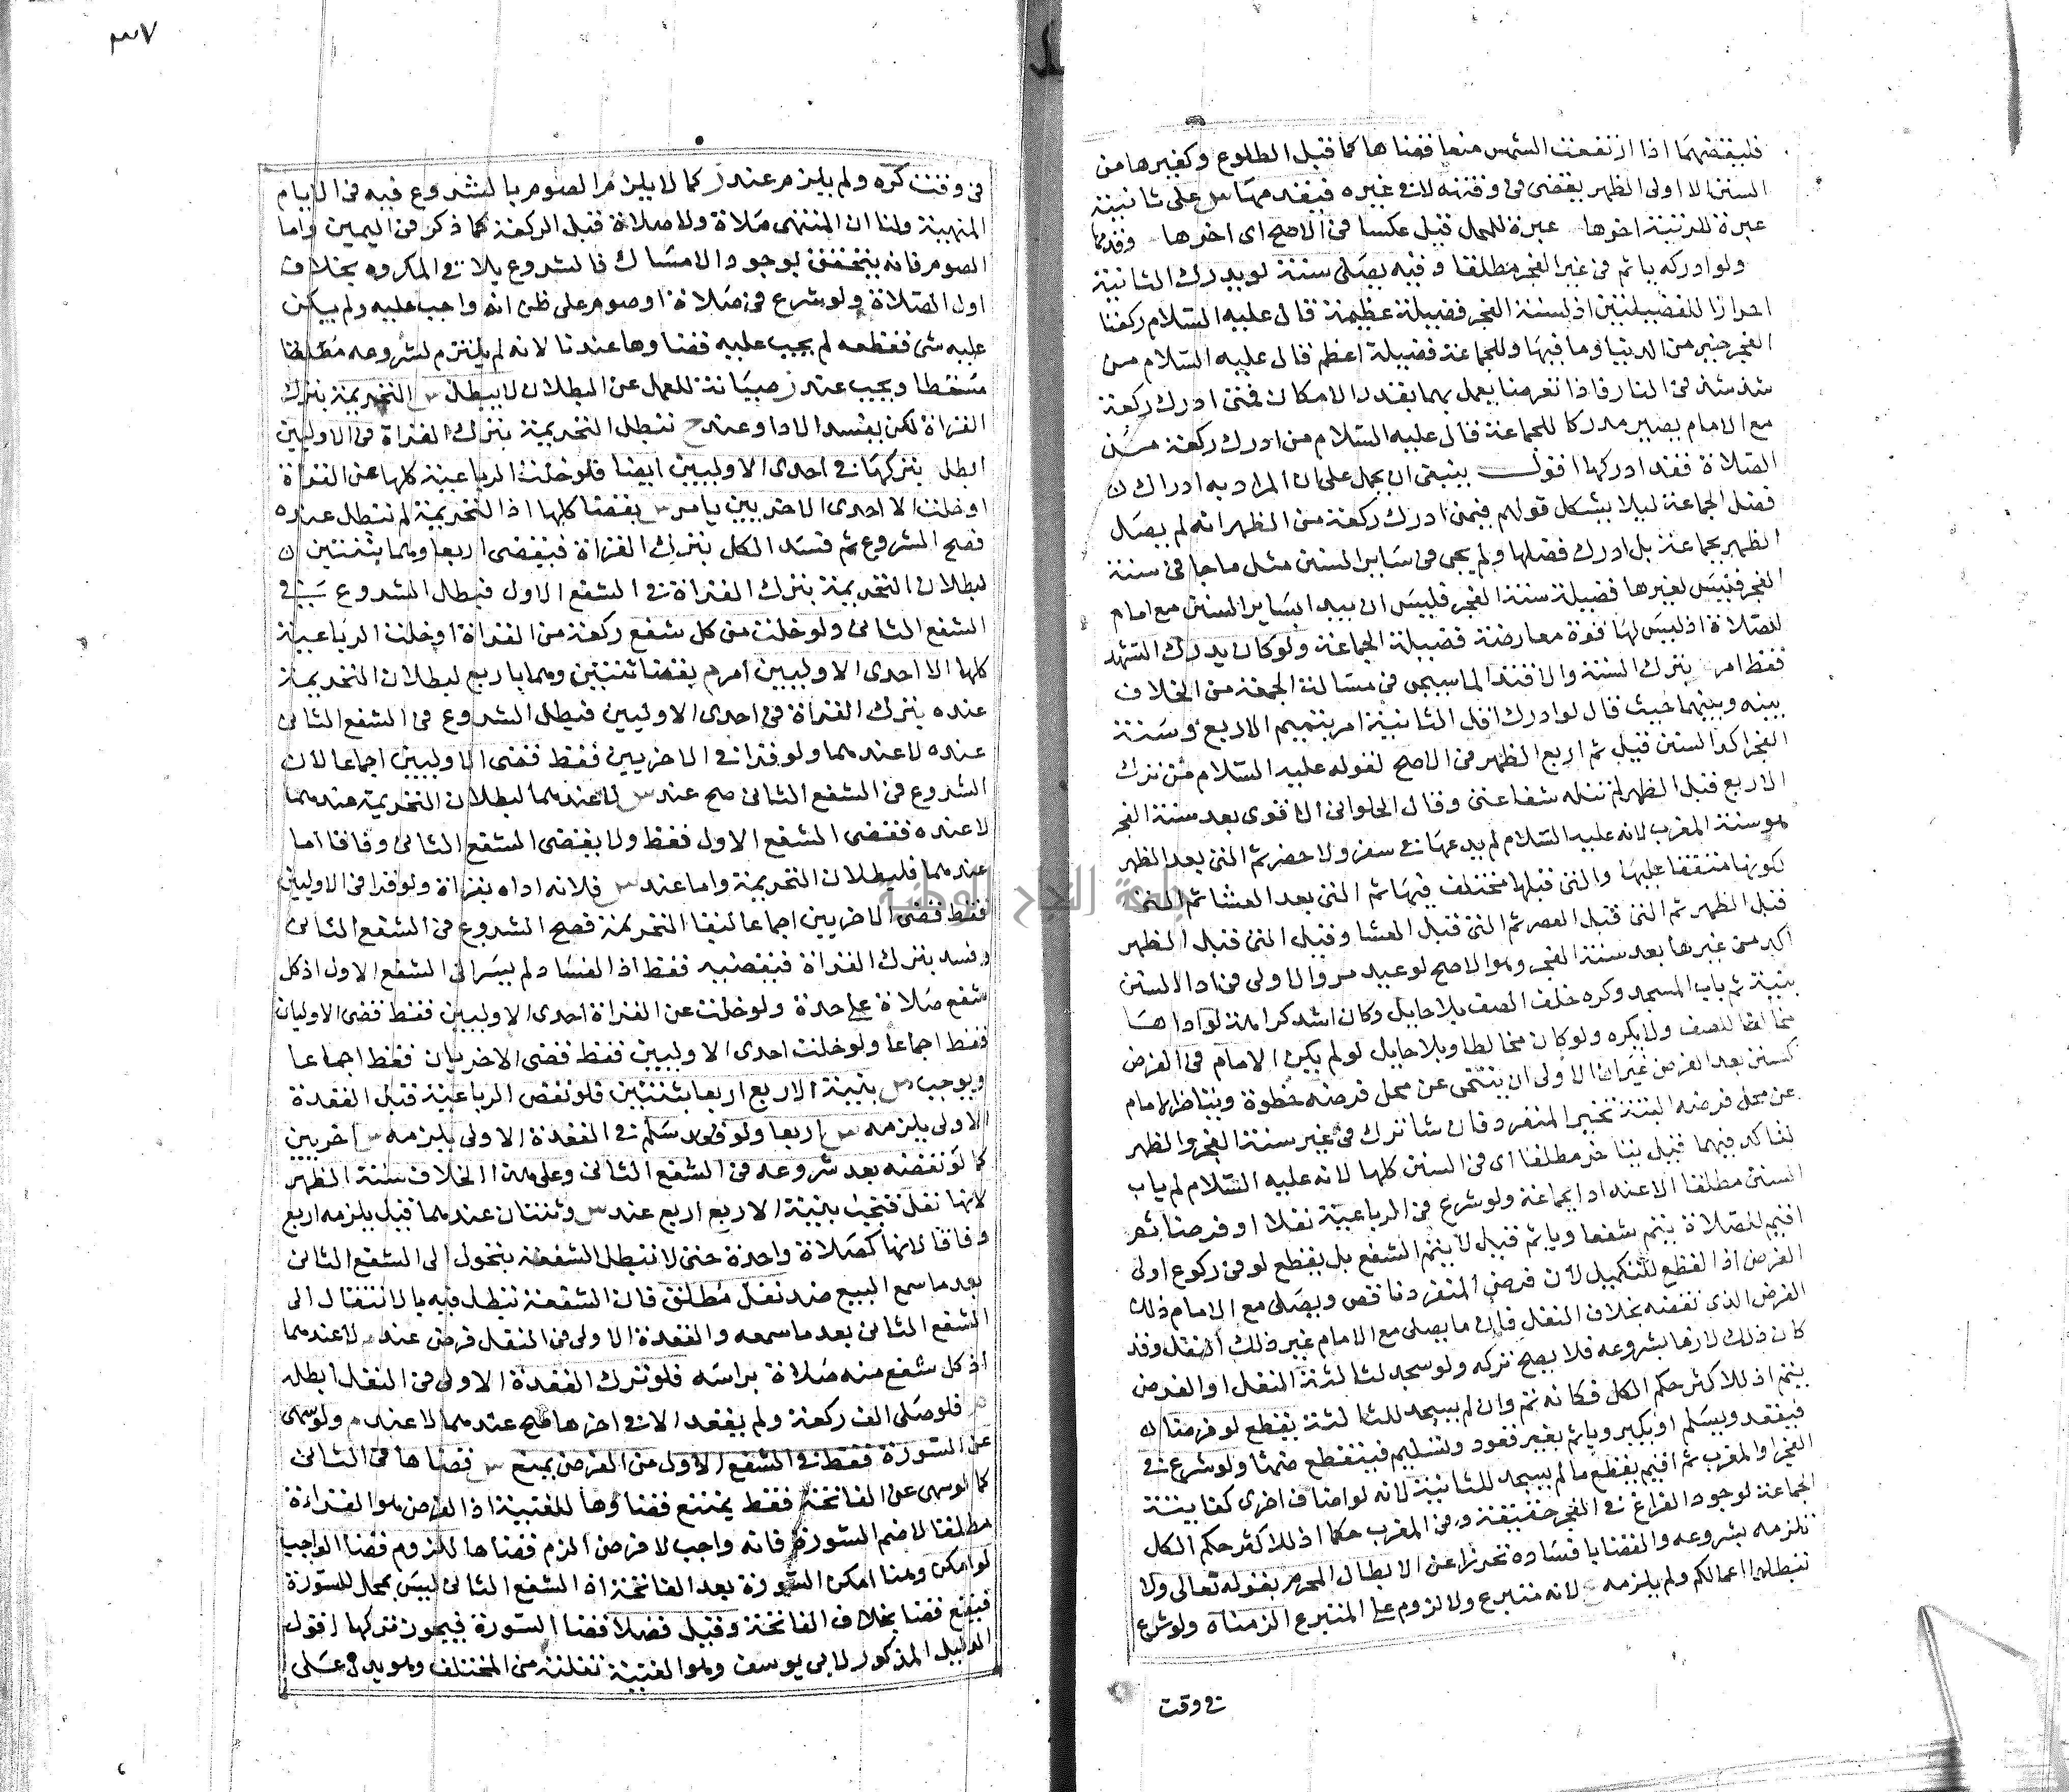 فليقضهما اذا ارتفعت الشمس منعا قضاها كما قبل الطلوع وكغيرها من
السنن الا اولى الظهر يقضى في وقته لا في غيره فيقدمها س على ثانيته
عبرة للرتبة اخرها عبرة للمحل قيل عكسا في الاصح اى اخرها وقدمها
ولو ادركه ياتم في غير الفجر مطلقا وفيه يصلى سنته لو يدرك الثانية
احرازا للفضيلتين اذ لسنة الفجر فضيلة عظيمة قال عليه السلام ركعتا
الفجر خير من الدنيا وما فيها وللجماعة فضيلة اعظم قال عليه السلام من
شذ شذ في النار فاذا تعرضنا يعمل بهما بقدر الامكان فمتى ادرك ركعة
مع الامام يصير مدركا للجماعة قال عليه السلام من ادرك ركعة من
الصلاة فقد ادركها اقول ينبغى ان يحمل على ان المراد به ادراك
فضل الجماعة ليلا يشكل قولهم فيمن ادرك ركعة من الظهر انه لم يصل
الظهر بجماعة بل ادرك فضلها ولم يجى في ساير السنن مثل ما جا في سنة
الفجر فليس لغيرها فضيلة سنة الفجر فليس ان يبدا بساير السنن مع امام
للصلاة اذ ليس لها قوة معارضة فضيلة الجماعة ولو كان يدرك التشهد
فقط امر بترك السنة والاقتدا لما سيجى في مسالة الجمعة من الخلاف
بينه وبينهما حيث قال لو ادرك اقل الثانية امر بتتميم الاربع وسنة
الفجر اكد السنن قيل ثم اربع الظهر في الاصح لقوله عليه السلام من ترك
الاربع قبل الظهر لم تنله شفاعتى وقال الحلوانى الاقوى بعد سنة الفجر
هو سنة المغرب لانه عليه السلام لم يدعها في سفر ولا حضر ثم التى بعد الظهر
لكونها متفقا عليها والتى قبلها مختلف فيها ثم التى بعد العشا ثم التى
قبل الظهر ثم التى قبل العصر ثم التى قبل العشا وقيل التى قبل الظهر
اكد من غيرها بعد سنة الفجر وهو الاصح لوعيد مر والاولى في ادا السنن
بيته ثم باب المسجد وكره خلف الصف بلا حايل وكان اشد كراهة لو اداها
مخالطا للصف ولا يكره ولو كان مخالطا وبلا حايل لو لم يكن الامام في الفرض
كسنن بعد الفرض غير ان الاولى ان يتنحى عن محل فرضه خطوة ويتاخر الامام
عن محل فرضه البتة تخير المنفرد فان شا ترك في غير سنة الفجر والظهر
لتاكد فيهما قيل يتاخر مطلقا اى في السنن كلها لانه عليه السلام لم يات
السنن مطلقا الا عند ادا بجماعة ولو شرع في الرباعية نفلا او فرضا ثم
اقيم للصلاة يتم شفعا وياتم قيل لا يتم الشفع بل يقطع لو في ركوع اولى
الفرض اذ القطع للتكميل لان فرض المنفرد ناقص ويصلى مع الامام ذلك
الفرض الذى نقضه بخلاف النفل فان ما يصلى مع الامام غير ذلك النفل وقد
كان ذلك لازما بشروعه فلا يصح تركه ولو سجد لثالثة النفل او الفرض
يتم اذ للاكثر حكم الكل فكانه تم وان لم يسجد للثالثة يقطع لو فرضا
فيقعد ويسلم او يكبر وياتم بغير قعود وتسليم فينقطع ضمنا ولو شرع في
الفجر او المغرب ثم اقيم يقطع ما لم يسجد للثانية لانه لو اضاف اخرى كفايته
الجماعة لوجود الفراغ في الفجر حقيقة وفي المغرب حكما اذ للاكثر حكم الكل
تلزمه بشروعه والقضا بافساده تحرزا عن الابطال المحرم بقوله تعالى ولا
تبطلوا اعمالكم ولم يلزمه لانه متبرع ولا لزوم على المتبرع الزمناه ولو شرع
في وقت
٣٧
في وقت كره ولم يلزم عند ز كما لا يلزم الصوم بالشروع فيه في الايام
المنهية ولنا ان المنهى صلاة ولا صلاة قبل الركعة كما ذكر في اليمين واما
الصوم فانه يتحقق بوجود الامساك فالشروع يلاقى المكروه بخلاف
اول الصلاة ولو شرع في صلاة او صوم على ظن انه واجب عليه ولم يكن
عليه شى فقطعه لم يجب عليه قضاوها عندنا لانه لم يلتزم بشروعه مطلقا
مسقطا ويجب عند ز صيانة للعمل عن البطلان لا يبطل س التحريمة بترك
القراة لكن يفسد الادا وعند ح تبطل التحريمة بترك القراة في الاوليين
ابطل بتركها في احدى الاوليين ايضا فلو خلت الرباعية كلها عن القراة
او خلت الا احدى الاخريين يامر س بقضا كلها اذ التحريمة لم تبطل عنده
فصح الشروع ثم فسد الكل بترك القراة فيقضى اربعا وهما بثنتين
لبطلان التحريمة بترك القراة في الشفع الاول فبطل الشروع في
الشفع الثانى ولو خلت من كل شفع ركعة من القراة او خلت الرباعية
كلها الا احدى الاوليين امرم بقضا ثنتين وهما باربع لبطلان التحريمة
عنده بترك القراة في احدى الاوليين فبطل الشروع في الشفع الثانى
عنده لا عندهما ولو قرا في الاخريين فقط قضى الاوليين اجماعا لان
الشروع في الشفع الثانى صح عند س لا عندهما لبطلان التحريمة عندهما
لا عنده فقضى الشفع الاول فقط ولا يقضى الشفع الثانى وفاقا اما
عندهما فلبطلان التحريمة واما عند س فلانه اداه بقراة ولو قرا في الاوليين
فقط قضى الاخريين اجماعا لبقا التحريمة فصح الشروع في الشفع الثانى
وفسد بترك القراة فيقضيه فقط اذ الفساد لم يسر الى الشفع الاول اذ كل
شفع صلاة على حدة ولو خلت عن القراة احدى الاوليين فقط قضى الاوليان
فقط اجماعا ولو خلت احدى الاوليين فقط قضى الاخريان فقط اجماعا
ويوجب س بنية الاربع اربعا بثنتين فلو نقض الرباعية قبل القعدة
الاولى يلزمه س اربعا ولو سلم في القعدة الاولى يلزمه س اخريين
كما لو نقضه بعد شروعه في الشفع الثانى وعلى هذا الخلاف سنة الظهر
لانها نفل فتجب بنية الاربع اربع عند س وثنتان عندهما قيل يلزمه اربع
وفاقا لانها كصلاة واحدة حتى لا تبطل الشفعة بتحول الى الشفع الثانى
بعد ما سمع البيع ضد نفل مطلق فان الشفعة تبطل فيه بالانتقال الى
الشفع الثانى بعد ما سمعه والقعدة الاولى في النفل فرض عند م لا عندهما
اذ كل شفع منه صلاة براسه فلو ترك القعدة الاولى في النفل ابطله
م فلو صلى الف ركعة ولم يقعد الا في اخرها صح عندهما لا عند م ولو سهى
عن السورة فقط في الشفع الاول من الفرض يمنع س قضاها في الثانى
كما لو سهى عن الفاتحة فقط يمتنع قضاوها للغنية اذ الفرض هو القراءة
مطلقا لا ضم السورة فانه واجب لا فرض الزم قضاها للزوم قضا الواجب
لو امكن وهنا امكن السورة بعد الفاتحة اذ الشفع الثانى ليس بمحل للسورة
فيقع قضا بخلاف الفاتحة وقيل فضلا قضا السورة فيجوز تركها اقول
الدليل المذكور لابى يوسف وهو الغنية نقلته من المختلف وهو يدل على